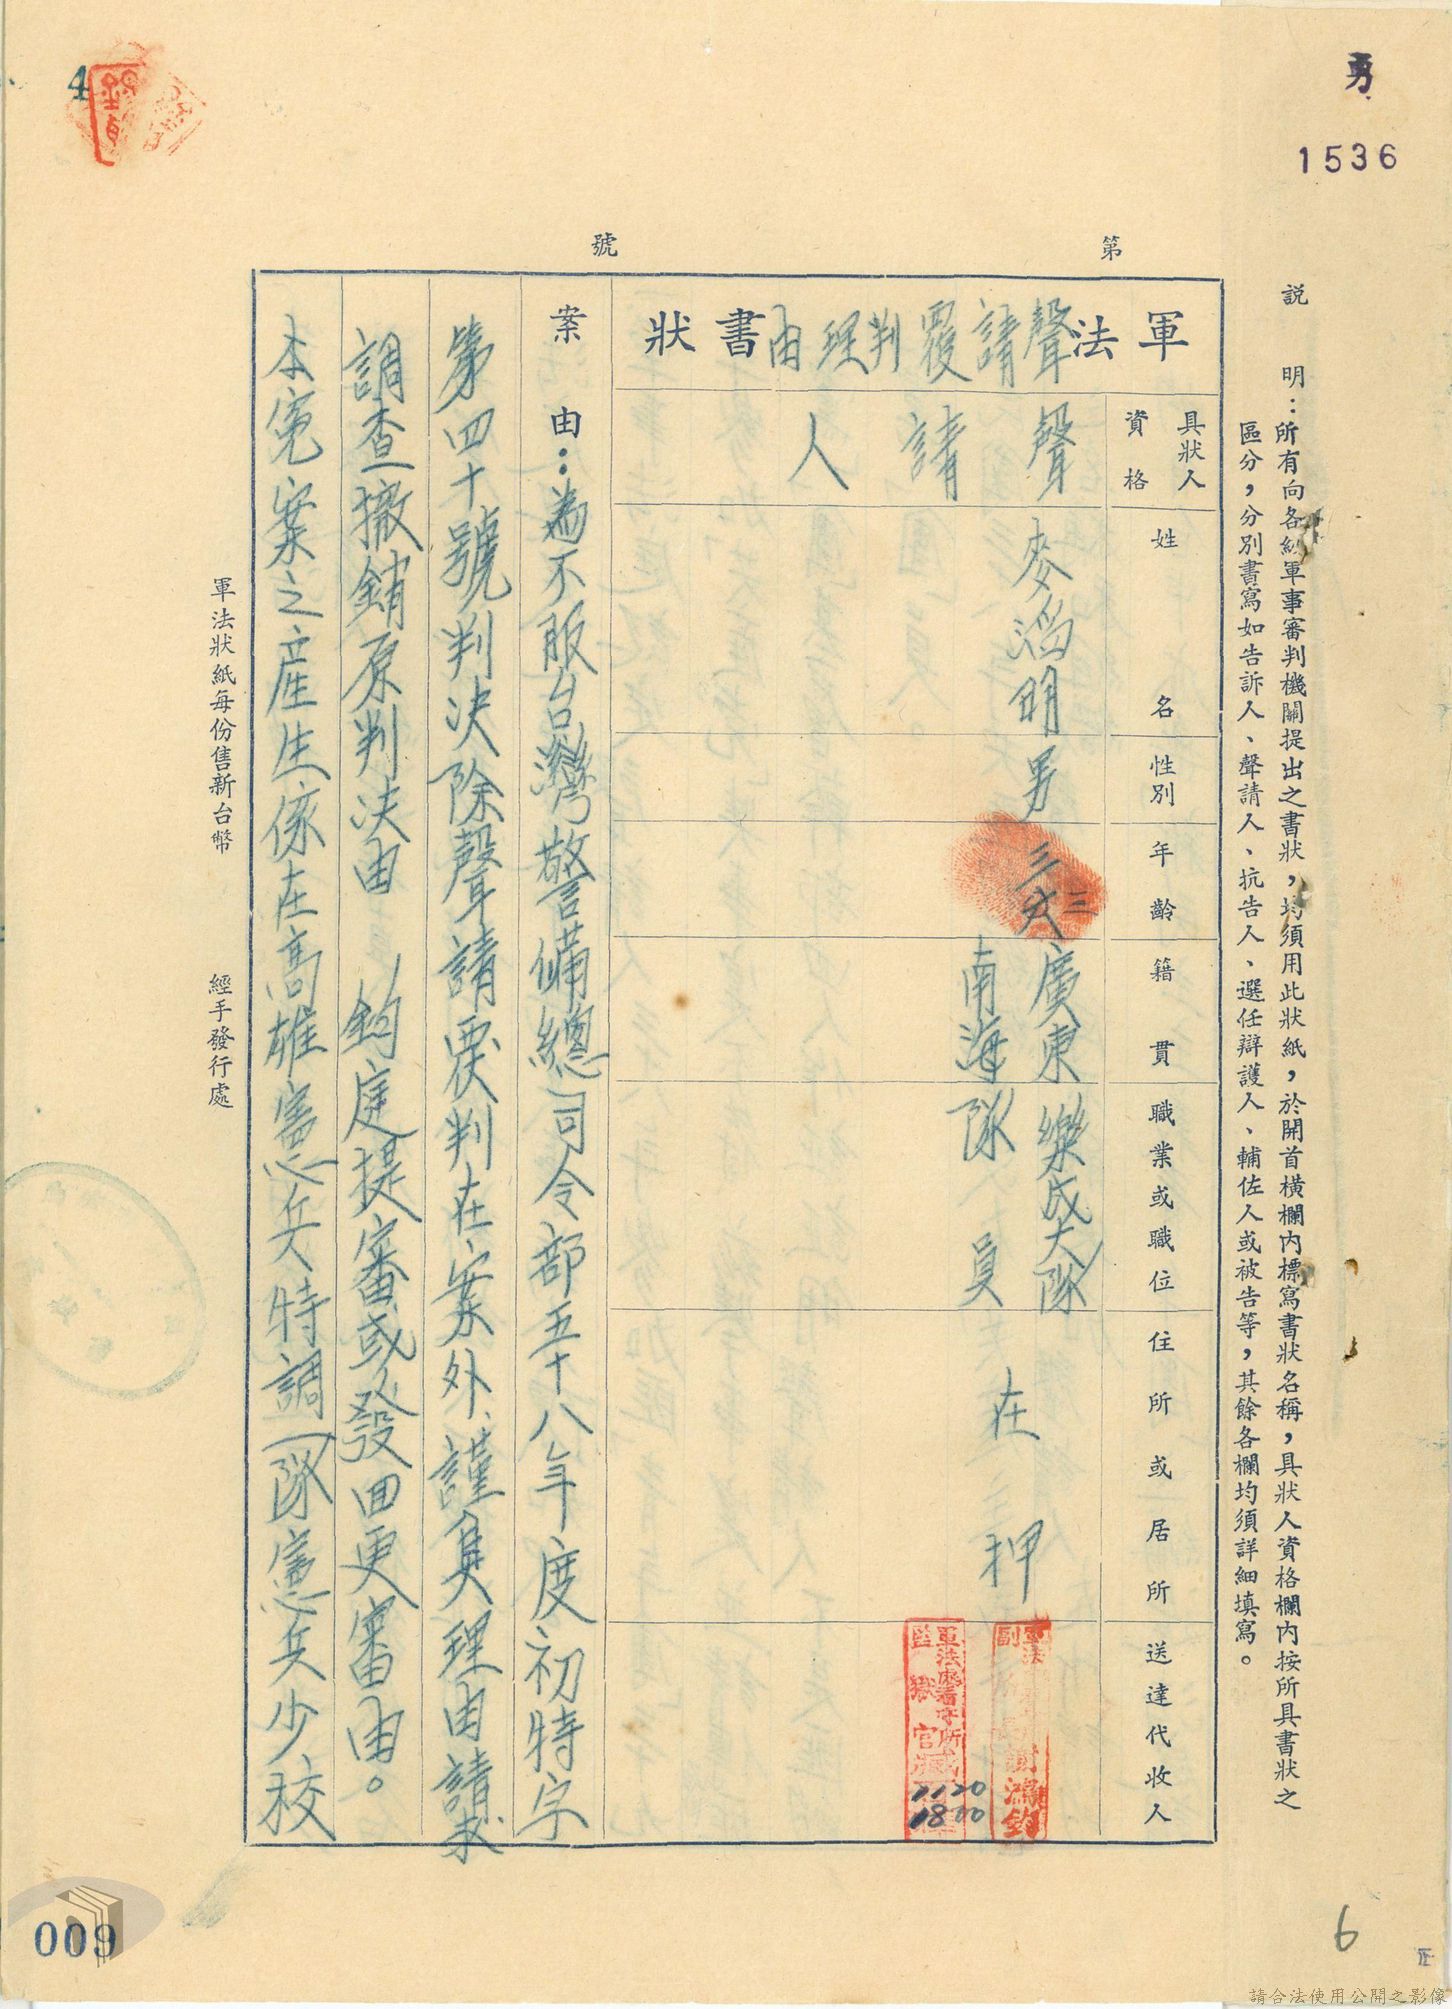 勇
1536
第 號
說明：所有向各級軍事審判機關提出之書狀，均須用此狀紙，於開首橫欄內標寫書狀名稱，具狀人資格欄內按所具書狀之
區分，分別書寫如告訴人、聲請人、抗告人、選任辯護人、輔佐人或被告等，其餘各欄均須詳細填寫。
軍法聲請覆判理由書狀
具狀人資格
姓名
性別
年齡
籍貫
職業或職位
住所或居所
送達代收人
聲請人
麥滔明
男
三三
廣東
南海
樂成大隊
隊員
在押
謝鴻鈞
軍法處看守所
監獄官
1120
1800
案由：為不服台灣警備總司令部五十八年度初特字
第四十號判決除聲請覆判在案外，謹具理由請求
調查撤銷原判決由 鈞庭提審或發回更審由。
本冤案之產生係在高雄憲兵特調一隊憲兵少校
軍法狀紙每份售新台幣
經手發行處
4
009
6
請合法使用公開之影像